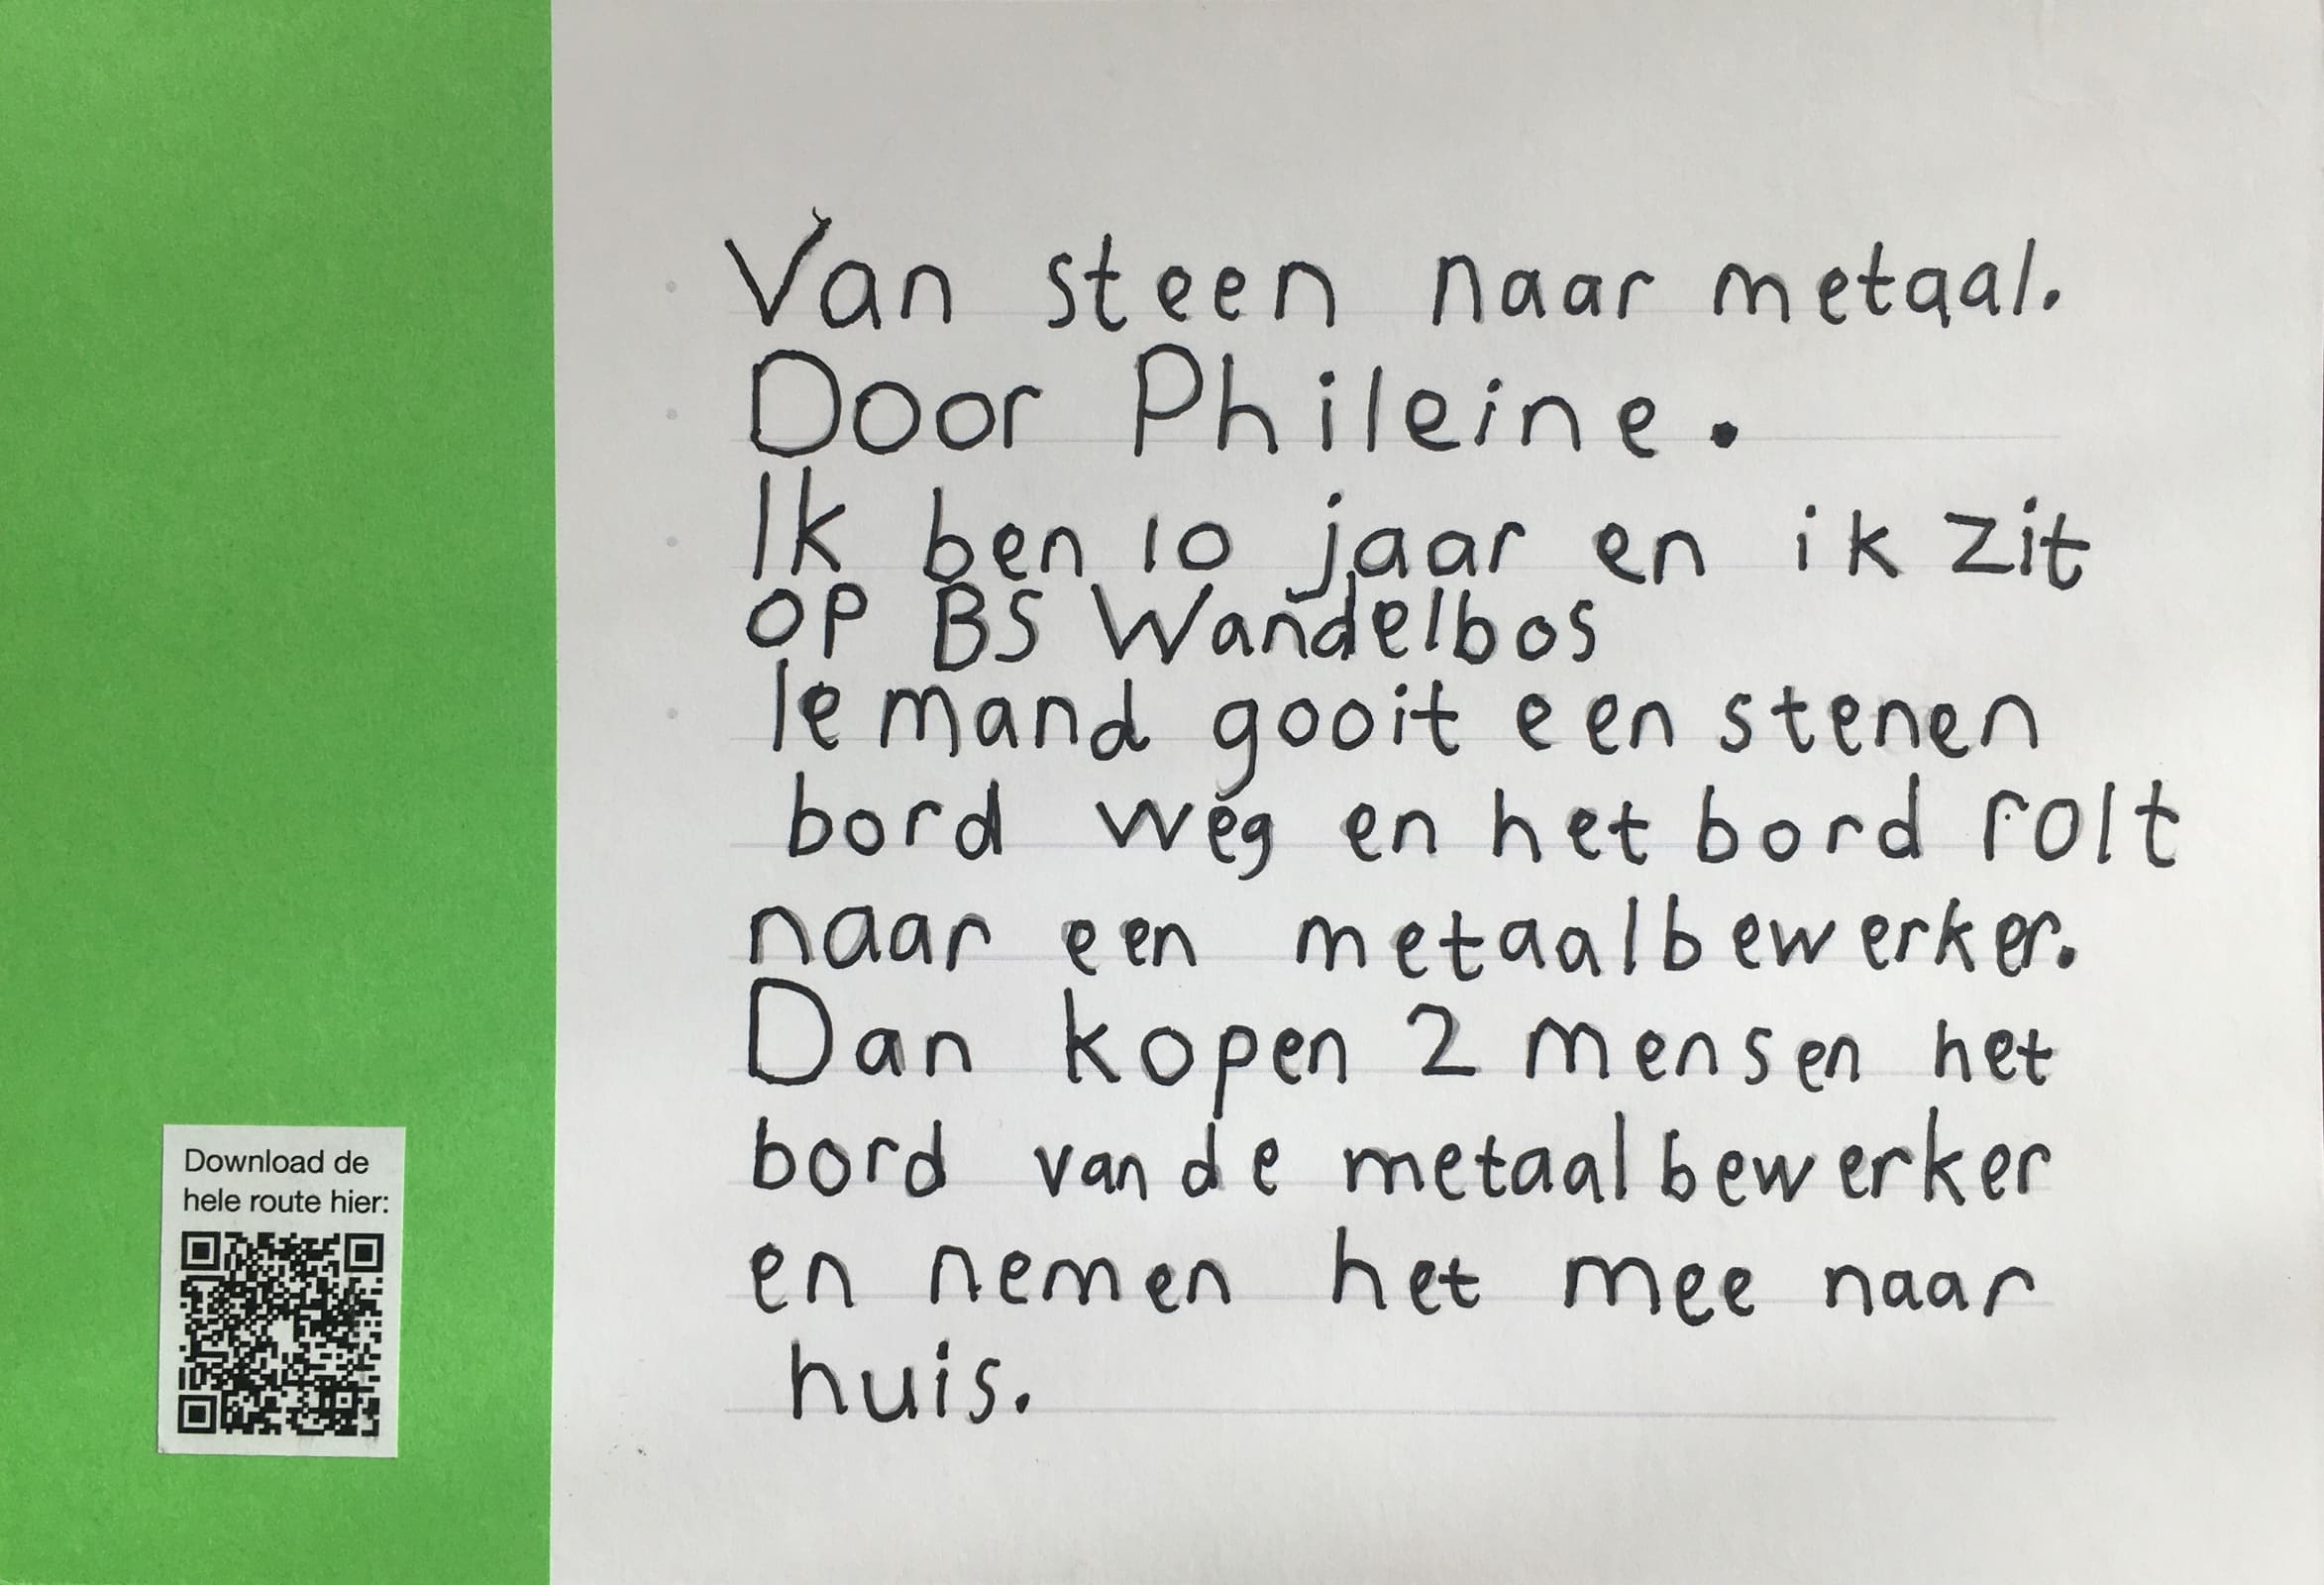 Van steen naar metaal.
Door Phileine.
Ik ben 10 jaar en ik zit
op BS Wandelbos
Iemand gooit een stenen
bord weg en het bord rolt
naar een metaalbewerker.
Dan kopen 2 mensen het
bord van de metaalbewerker
en nemen het mee naar
huis.
Download de
hele route hier: